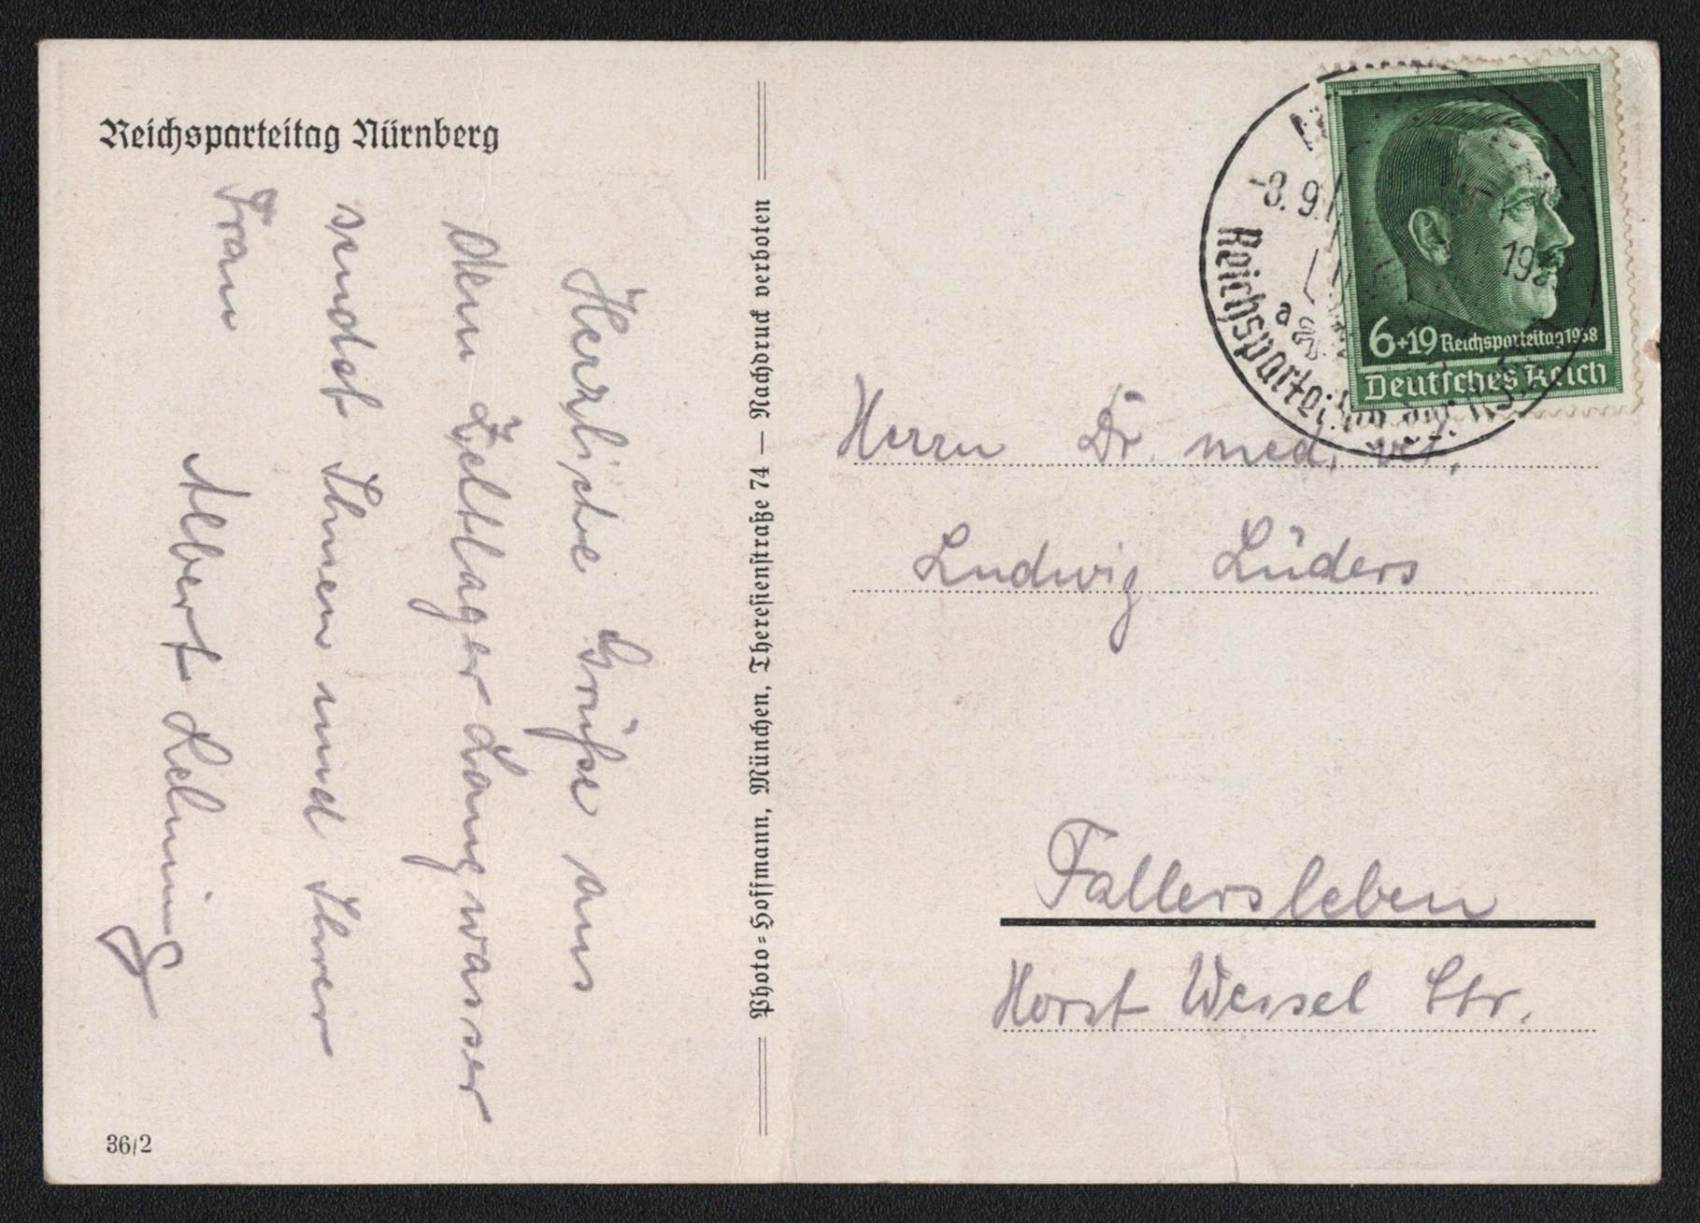 Reichsparteitag Nürnberg
Herzliche Grüße aus
dem Zeltlager Langwasser
sendet Ihnen und Ihrer
Frau
Albert
36/2
Photo=Hoffmann, München, Theresienstraße 74 — Nachdruck verboten
-8.9.
a
Reichsparteitag der NSDAP
6+19 Reichsparteitag 1938
Deutsches Reich
Herrn Dr. med. vet.
Ludwig Lüders
Fallersleben
Horst Wessel Str.